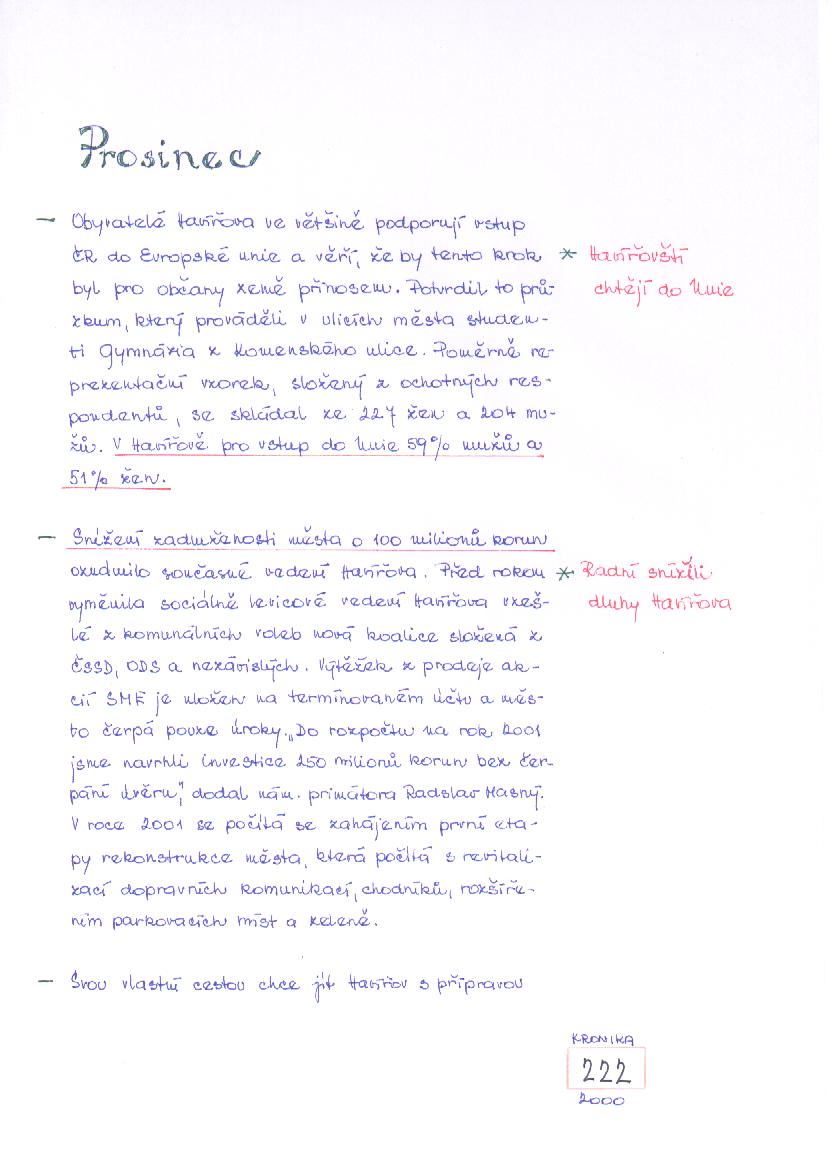 Prosinec
— Obyvatelé Havířova ve většině podporují vstup
ČR do Evropské unie a věří, že by tento krok
* Havířovští
byl pro občany země přínosem. Potvrdil to prů-
chtějí do Unie
zkum, který prováděli v ulicích města studen-
ti Gymnázia z Komenského ulice. Poměrně re-
prezentační vzorek, složený z ochotných res-
pondentů, se skládal ze 227 žen a 204 mu-
žů. V Havířově pro vstup do Unie 59% mužů a
51% žen.
— Snížení zadluženosti města o 100 milionů korun
oznámilo současné vedení Havířova. Před rokem
* Radní snížili
vyměnila sociálně levicové vedení Havířova vzeš-
dluhy Havířova
lé z komunálních voleb nová koalice složená z
ČSSD, ODS a nezávislých. Výtěžek z prodeje ak-
cií SME je uložen na termínovaném účtu a měs-
to čerpá pouze úroky. „Do rozpočtu na rok 2001
jsme navrhli investice 250 milionů korun bez čer-
pání úvěru," dodal nám. primátora Radslav Masný.
V roce 2001 se počítá se zahájením první eta-
py rekonstrukce města, která počítá s revitali-
zací dopravních komunikací, chodníků, rozšíře-
ním parkovacích míst a zeleně.
— Svou vlastní cestou chce jít Havířov s přípravou
KRONIKA
222
2000